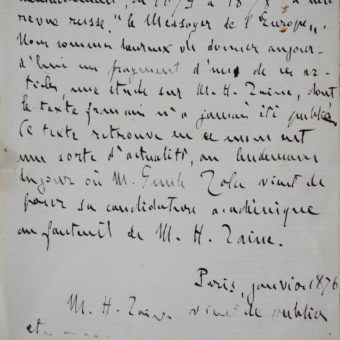 de 1875 à 1878 à une
revue russe, "le Messager de l'Europe".
Nous sommes heureux de donner aujour-
d'hui un fragment d'une de ces ar-
ticles, une étude sur M. H. Taine, dont
le texte français n'a jamais été publié.
Ce texte retrouve en ce moment
une sorte d'actualité, au lendemain
du jour où M. Emile Zola vient de
poser sa candidature académique
au fauteuil de M. H. Taine.
Paris, janvier 1876
M. H. Taine vient de publier